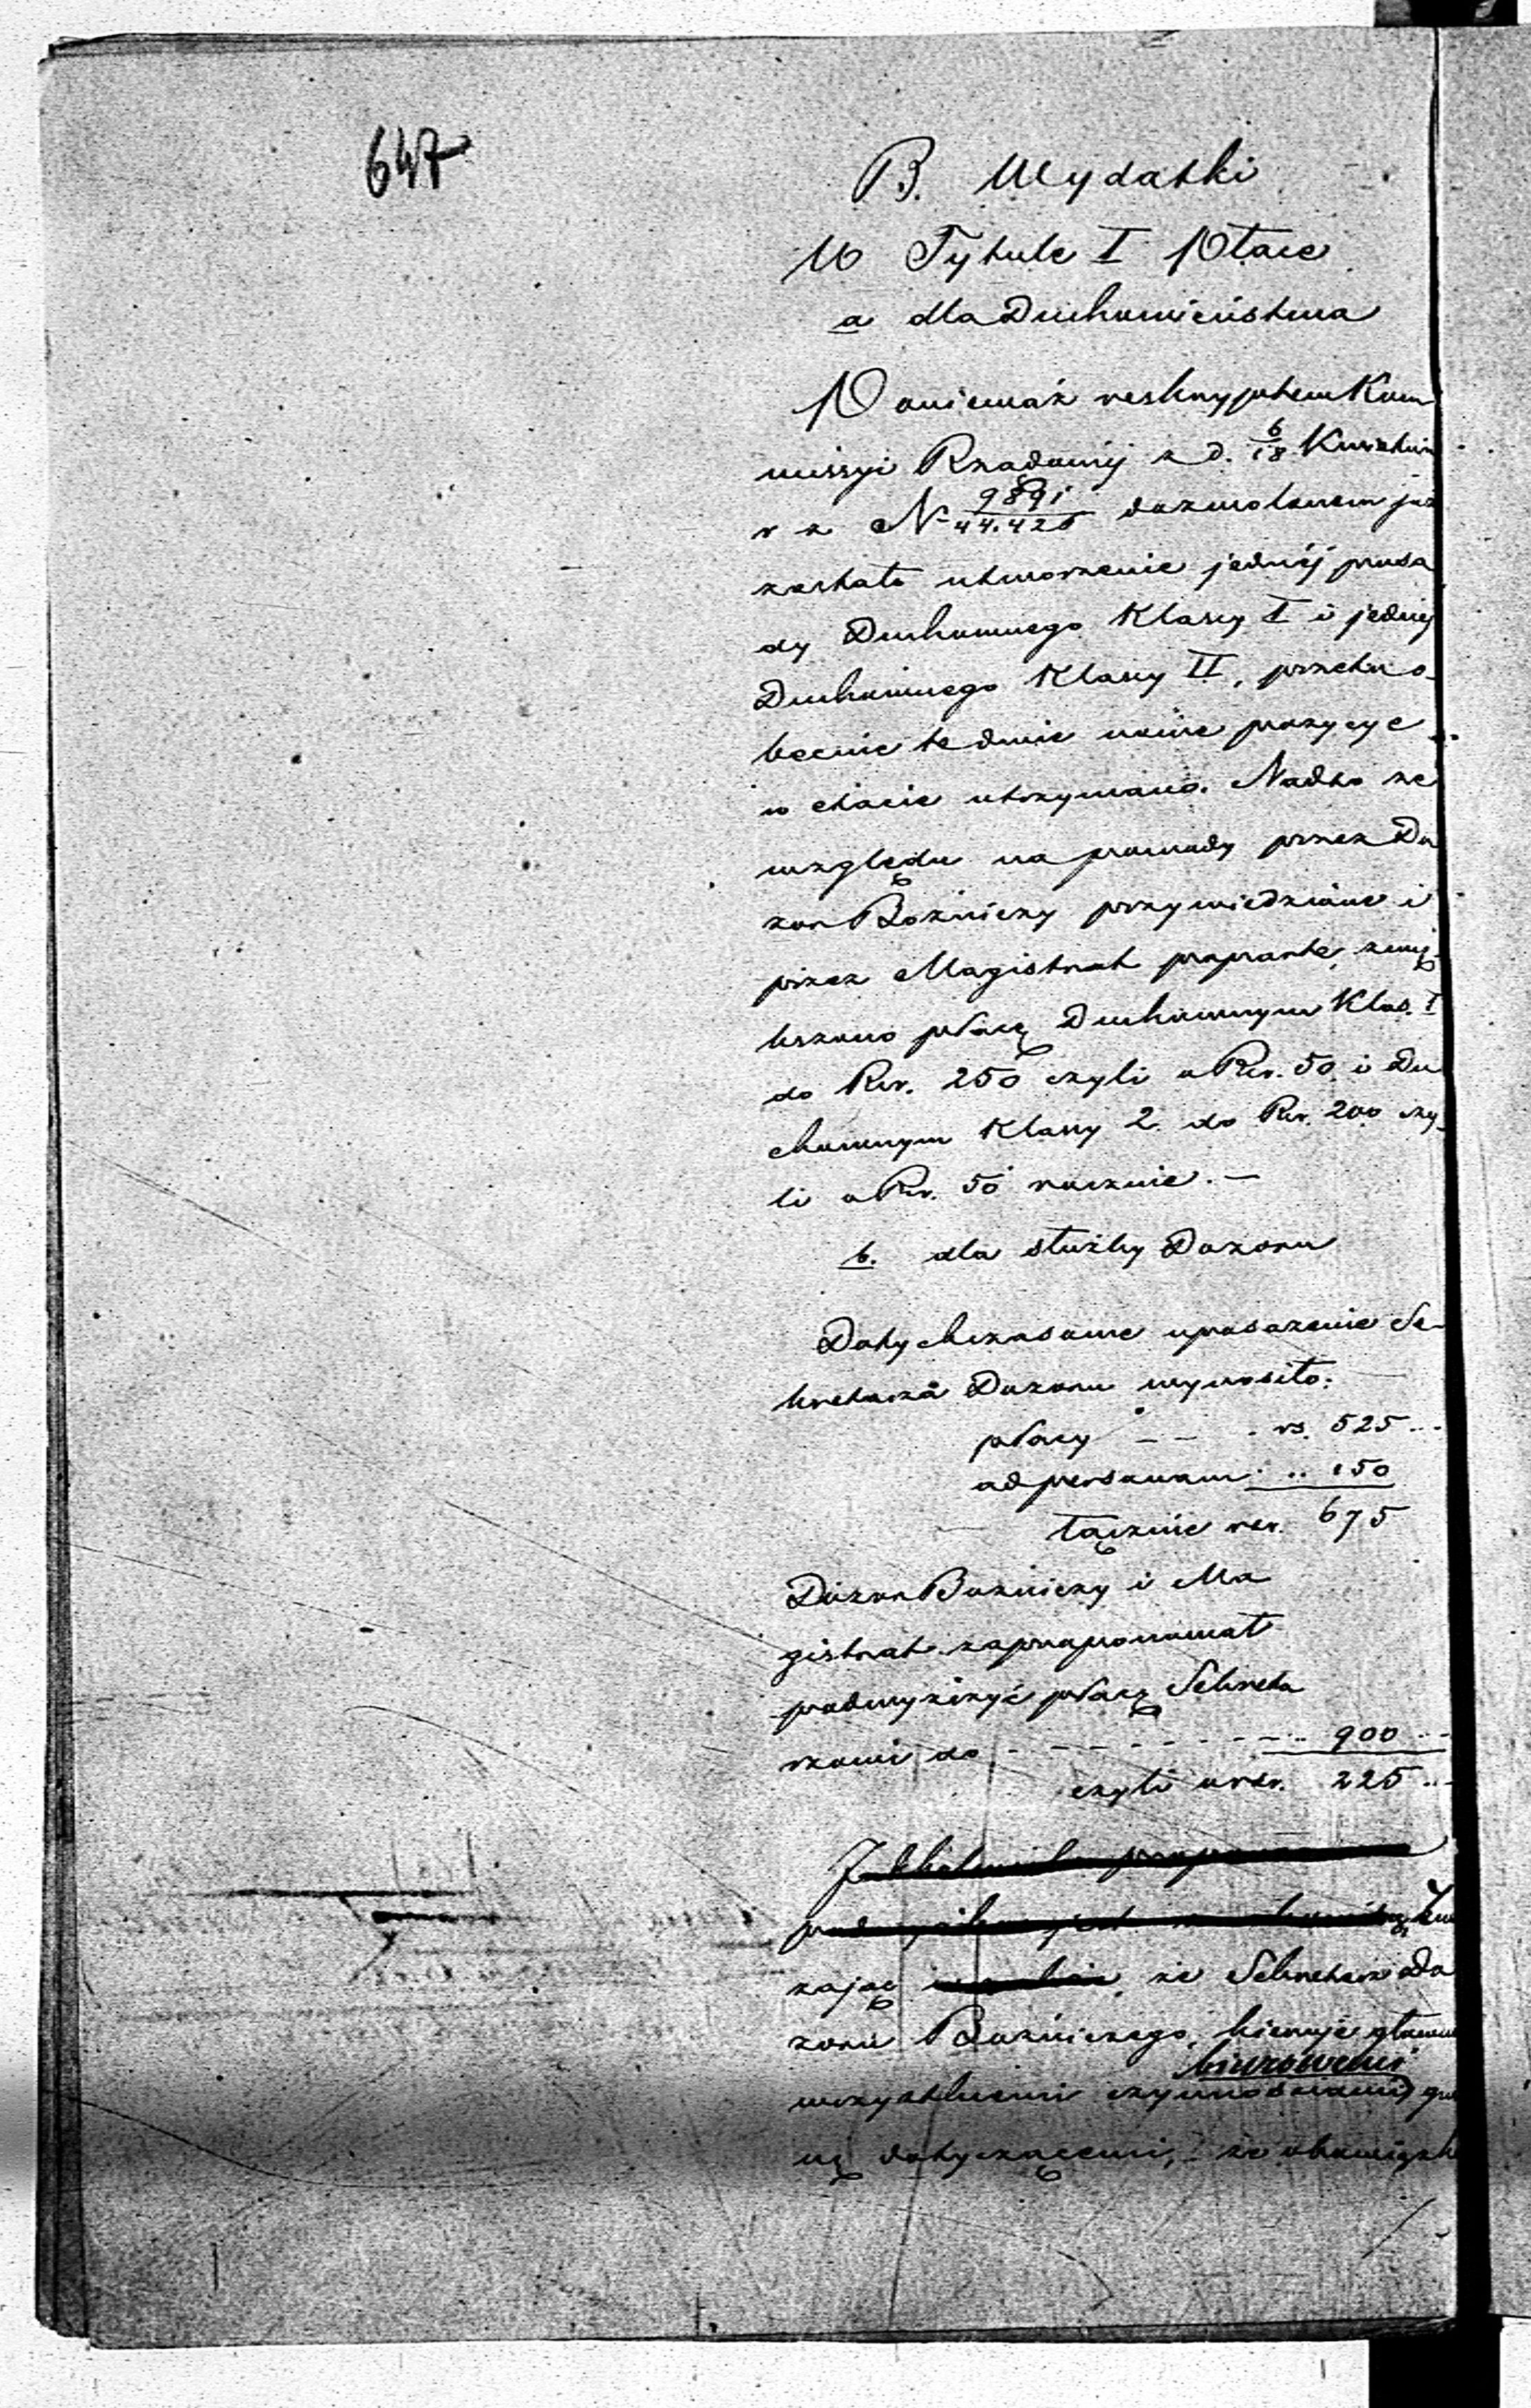 647
B. Wydatki
W Tytule I Płace
a dla Duchowieństwa
Ponieważ reskryptem Kom
missyi Rządowéj z d. 6/18 Kwietnia
r z № 9891/44.426 dozwolonem już
zostało utworzenie jednéj posa
dy Duchownego Klassy I i jednéj
Duchownego Klassy II, przeto o-
becnie te dwie nowe pozycye
w etacie utrzymano. Nadto ze
względu na powody przez Do
zór Bożniczy przywiedzione i
przez Magistrat poparte, zwię-
kszono płacę Duchownym Klas. I
do Rsr. 250 czyli o Rsr. 50 i Du
chownym Klassy 2. do Rsr. 200 czy-
li o Rsr. 50 rocznie. —
b. dla służby Dozoru
Dotychczasowe uposażenie Se-
kretarza Dozoru wynosiło:
płacy — — . rs. 525 ...
ad personam . .. 150
łącznie rsr. 675
Dozór Bożniczy i Ma
gistrat zaproponował
podwyższyć płacę Sekreta
rzowi do - - - - - - - - .. 900 ...
czyli o rsr. 225 ...
Zwa
żając że Sekretarz Do
zoru Bożniczego, kieruje
biurowemi
wszystkiemi czynnościami
nę dotyczącemi, że obowiązk